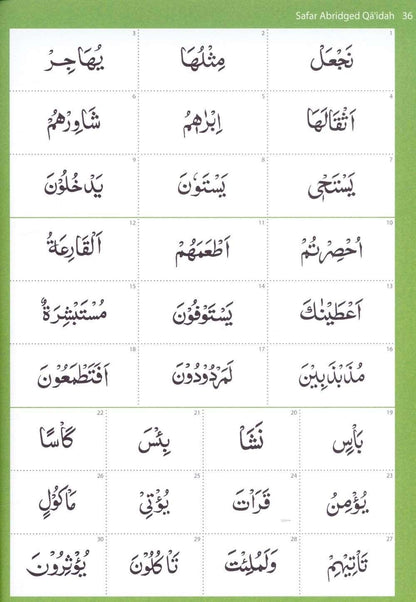 Safar Abridged Qā'idah 36
1 2 3
نَجْعَلْ مِثْلُهَا يُهَاجِرْ
4 5 6
اَثْقَالَهَا اِبْرٰهٖمُ شَاوِرْهُمْ
7 8 9
يَسْتَحْيٖ يَسْتَوٗنَ يَدْخُلُوْنَ
10 11 12
اُحْصِرْتُمْ اَطْعَمَهُمْ اَلْقَارِعَةُ
13 14 15
اَعْطَيْنٰكَ يَسْتَوْفُوْنَ مُسْتَبْشِرَةٌ
16 17 18
مُذَبْذَبِيْنَ لَمَرْدُوْدُوْنَ اَفَتَطْمَعُوْنَ
19 20 21 22
بَاْسٍ نَشَاْ بِئْسَ كَاْسًا
23 24 25 26
يُؤْمِنُ قَرَاْتَ يُؤْتِيْ مَاْكُوْلٍ
27 28 29 30
تَاْتِيْهِمْ وَلَمُلِئْتَ تَاْكُلُوْنَ يُؤْثِرُوْنَ